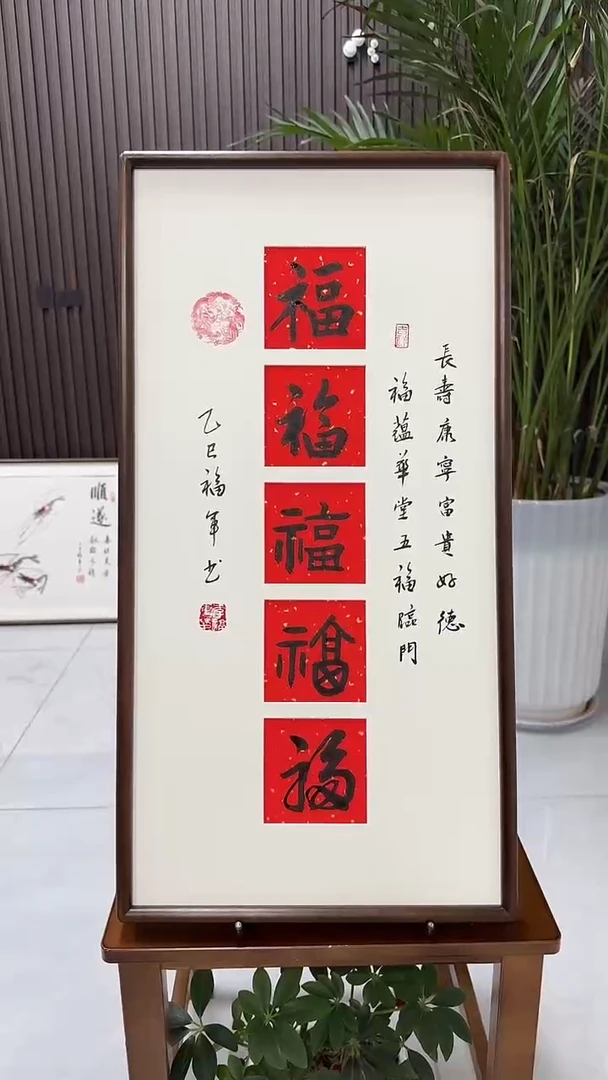 長壽康寧富貴好德
福蘊華堂五福臨門
福
福
福
福
福
乙巳福軍书
順遂